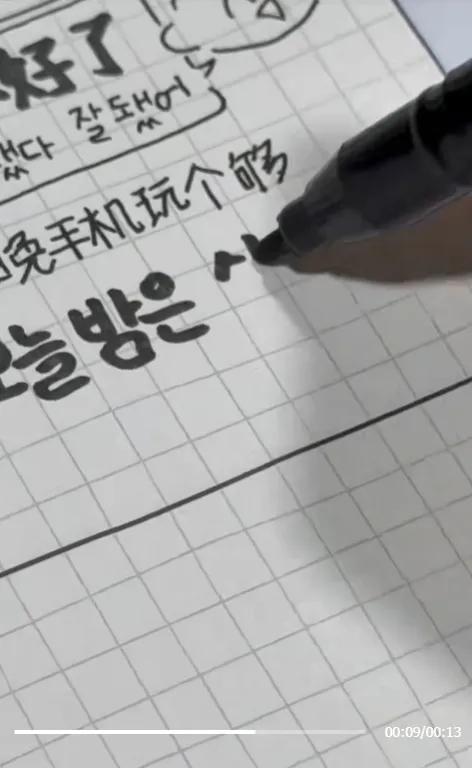 好了
잘됐어
晚手机玩个够
오늘 밤은
00:09/00:13